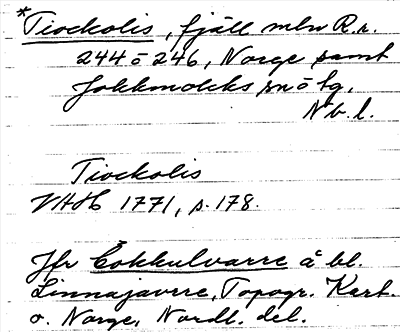 *Tiockolis, fjäll mln R.r.
244 o 246, Norge samt
Jokkmokks sn o tg.
Nb. l.
Tiockolis
VAH 1771, s. 178.
Jfr Čokkulvarre å bl.
Linnajavrre, Topogr. Kart.
o. Norge, Nordl. del.